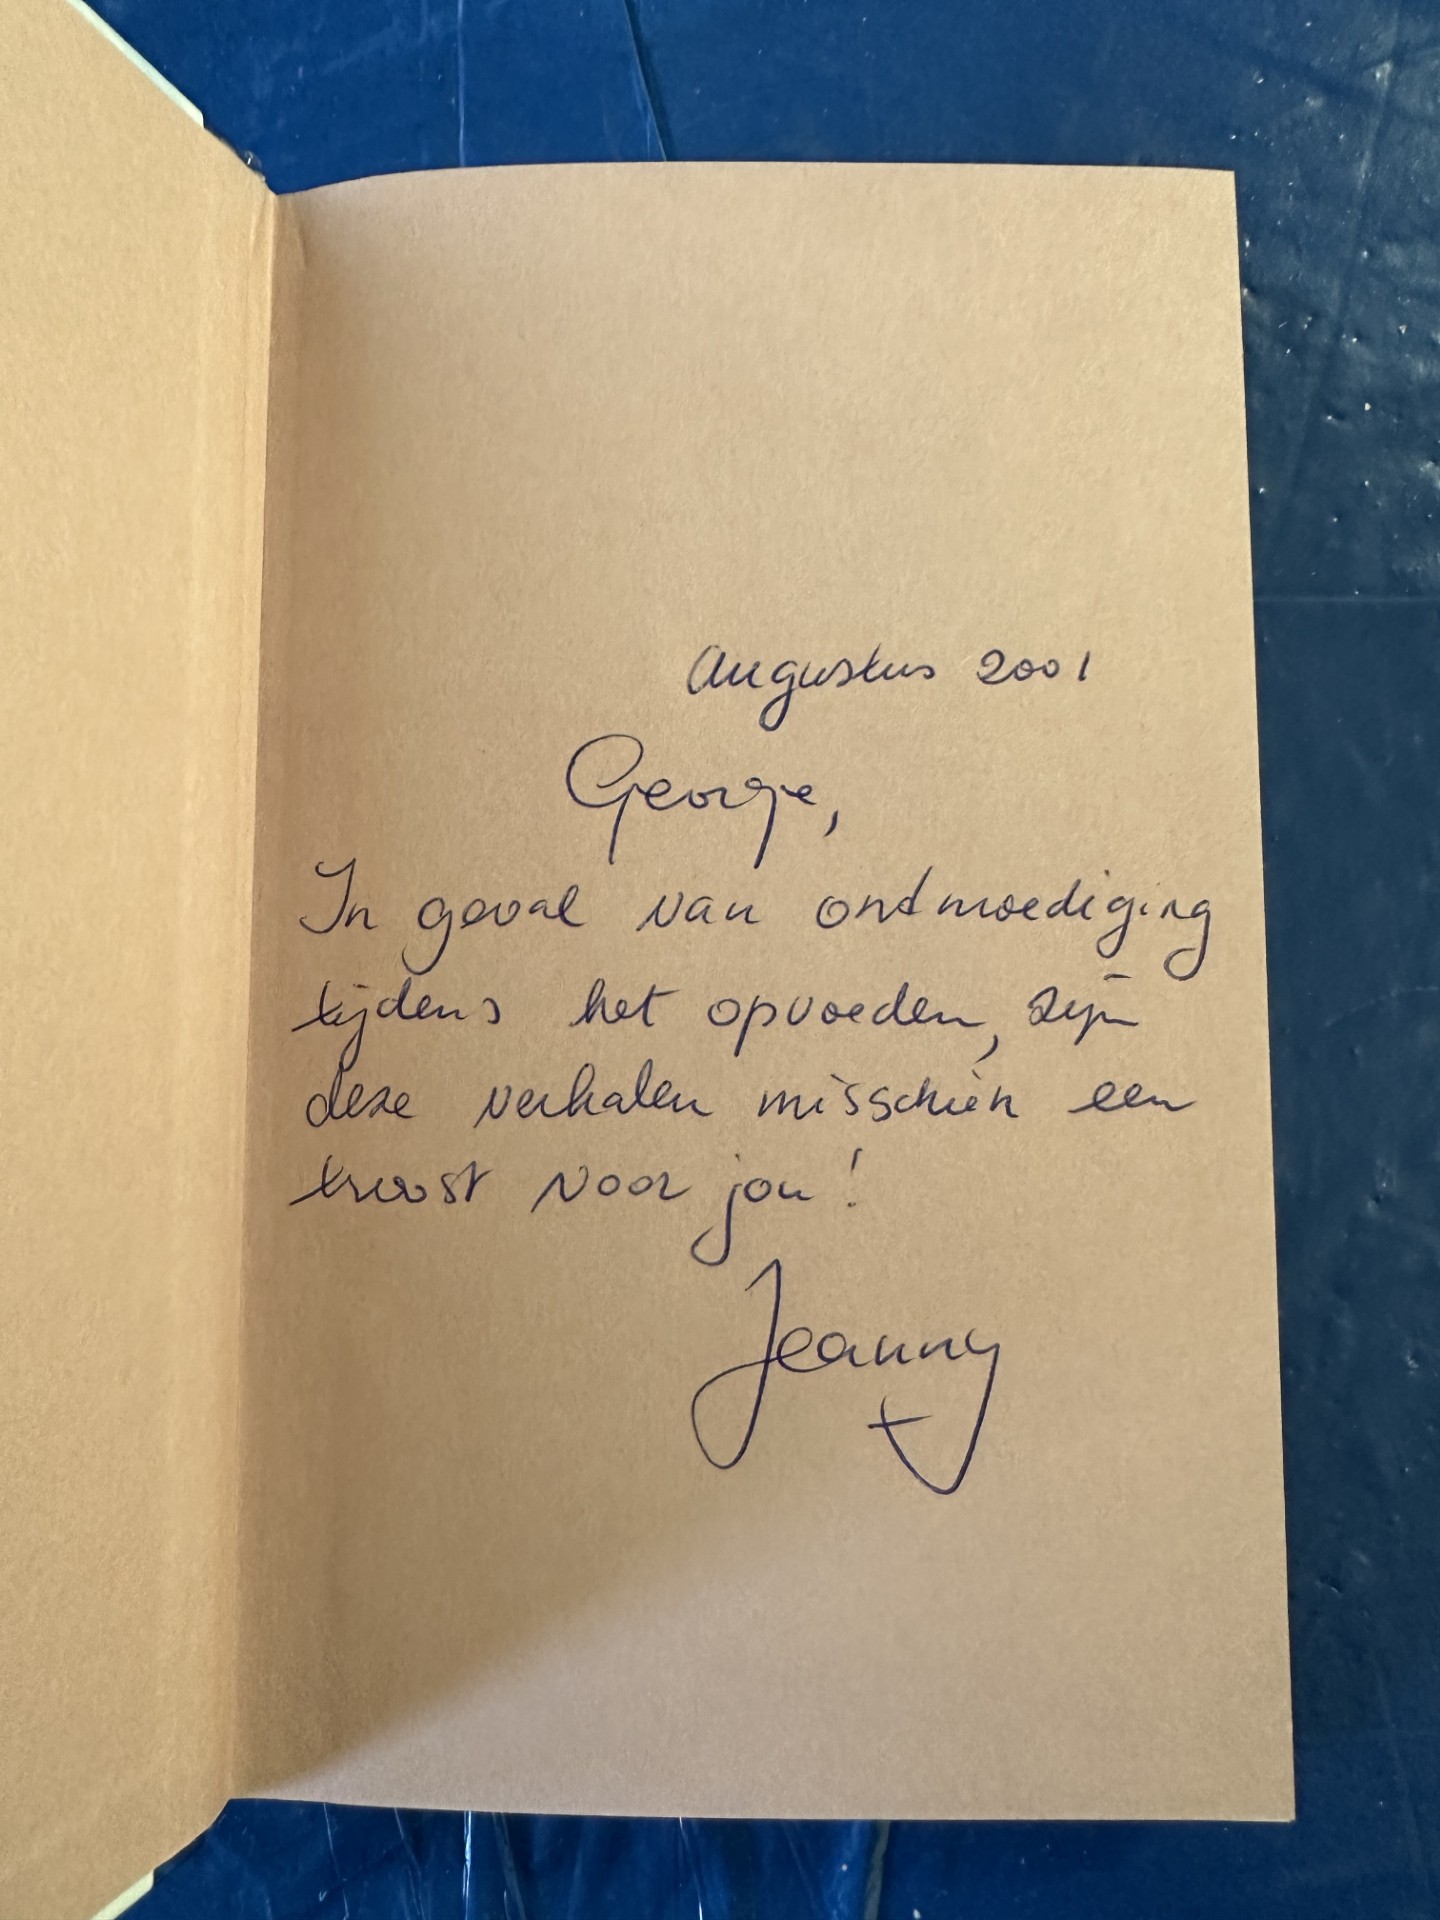 Augustus 2001
George,
In geval van ontmoediging
tijdens het opvoeden, zijn
deze verhalen misschien een
troost voor jou!
Jeanny